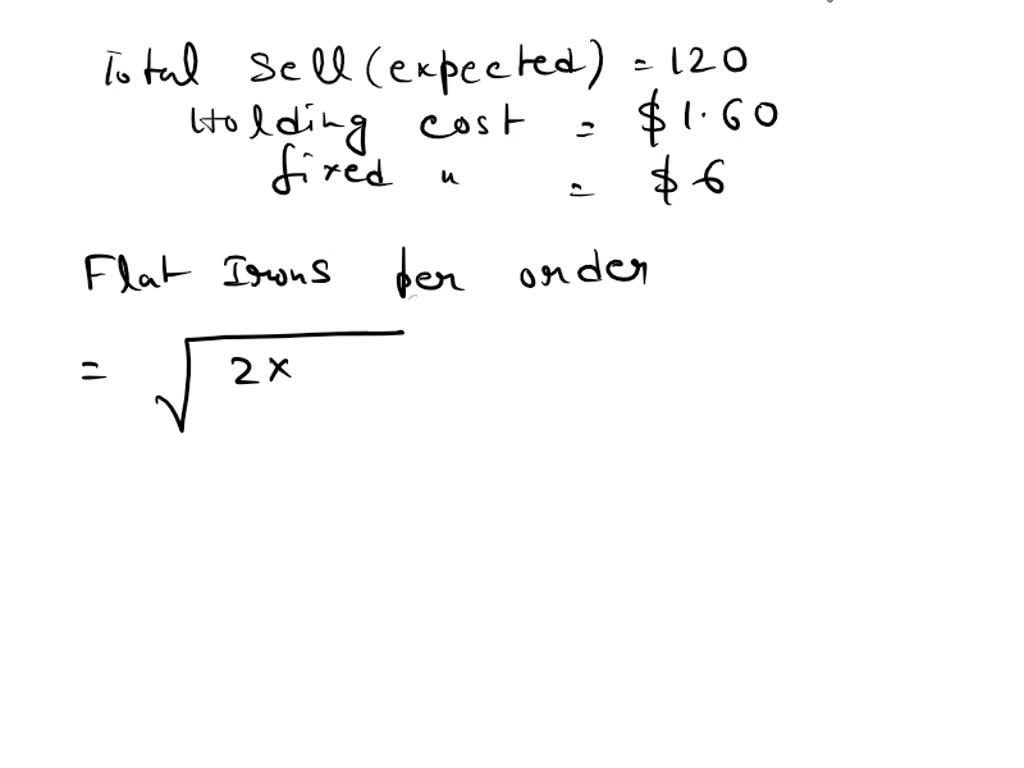 Total Sell (expected) = 120
Holding cost = $1.60
fixed " = $6
Flat Irons per order
= √2×